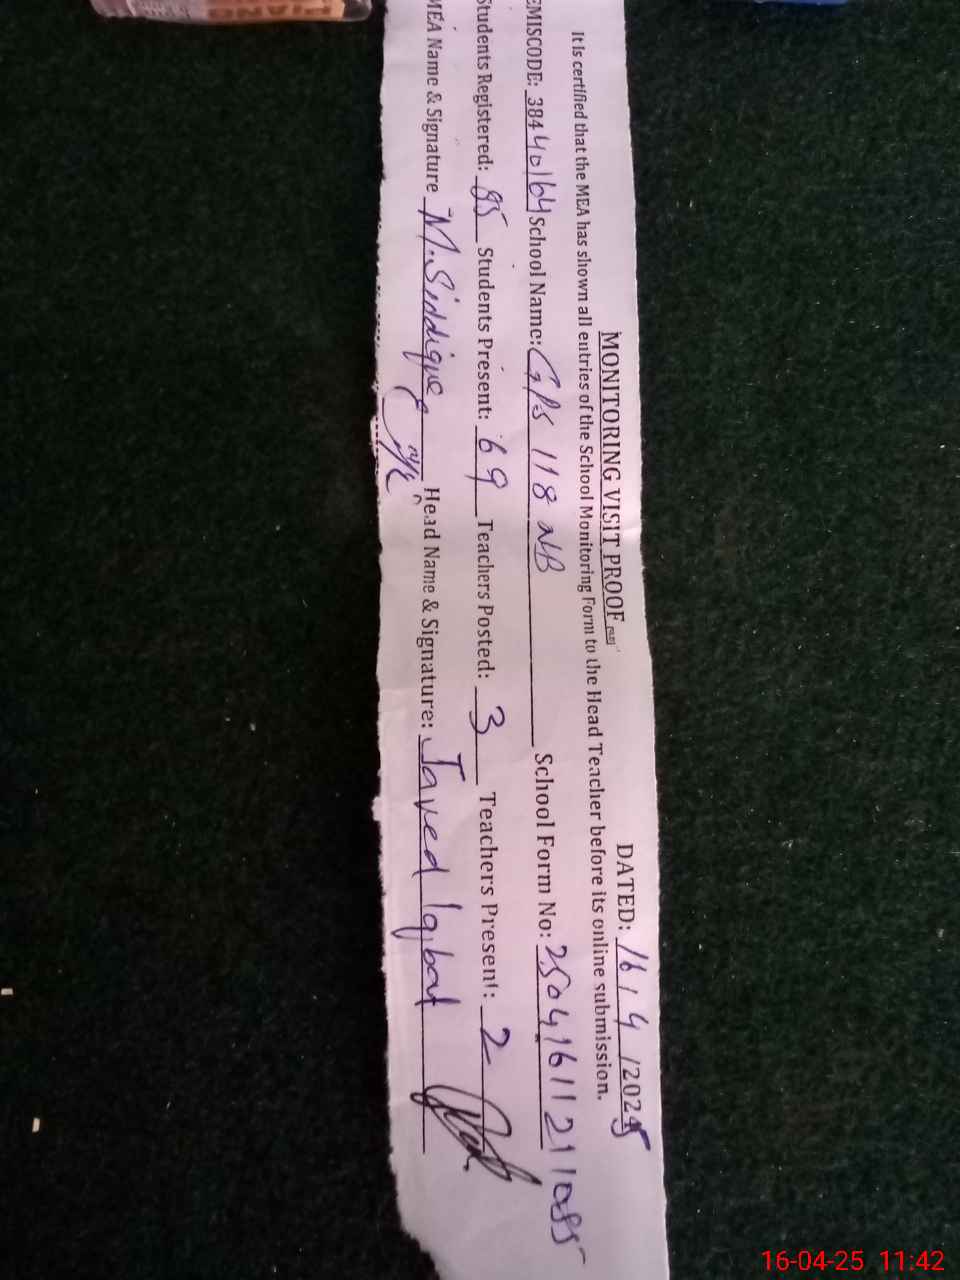 MONITORING VISIT PROOF DATED: 16/4/2025
It is certified that the MEA has shown all entries of the School Monitoring Form to the Head Teacher before its online submission.
EMISCODE: 38440164 School Name: GPS 118 NB School Form No: 25041611211085
Students Registered: 85 Students Present: 69 Teachers Posted: 3 Teachers Present: 2
MEA Name & Signature M. Siddique Head Name & Signature: Javed Iqbal
16-04-25 11:42